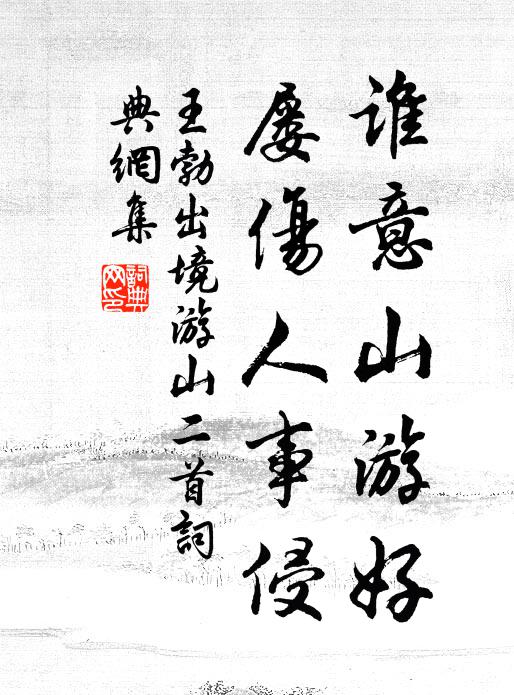 誰意山游好
屢傷人事侵
王勃出境游山二首詞
典網集
詞典网印